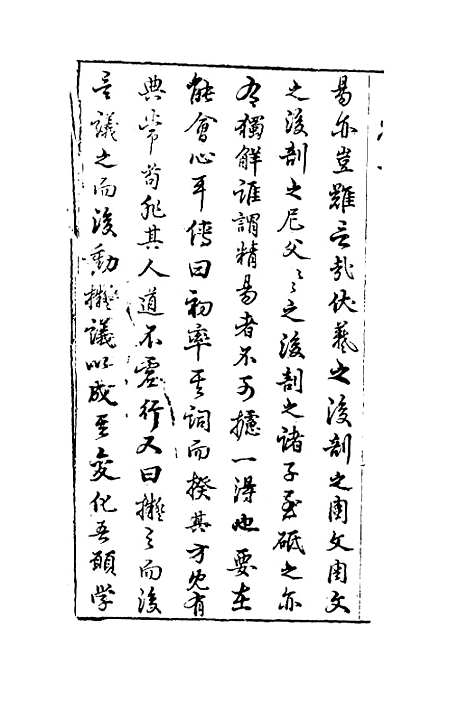 易亦豈難言哉伏羲之後剖之周文周文
之後剖之尼父尼父之後剖之諸子至砥之亦
有獨解誰謂精易者不可攄一得也要在
能會心耳傳曰初率其詞而揆其方既有
典常苟非其人道不虛行又曰擬之而後
言議之而後動擬議以成其變化吾願學